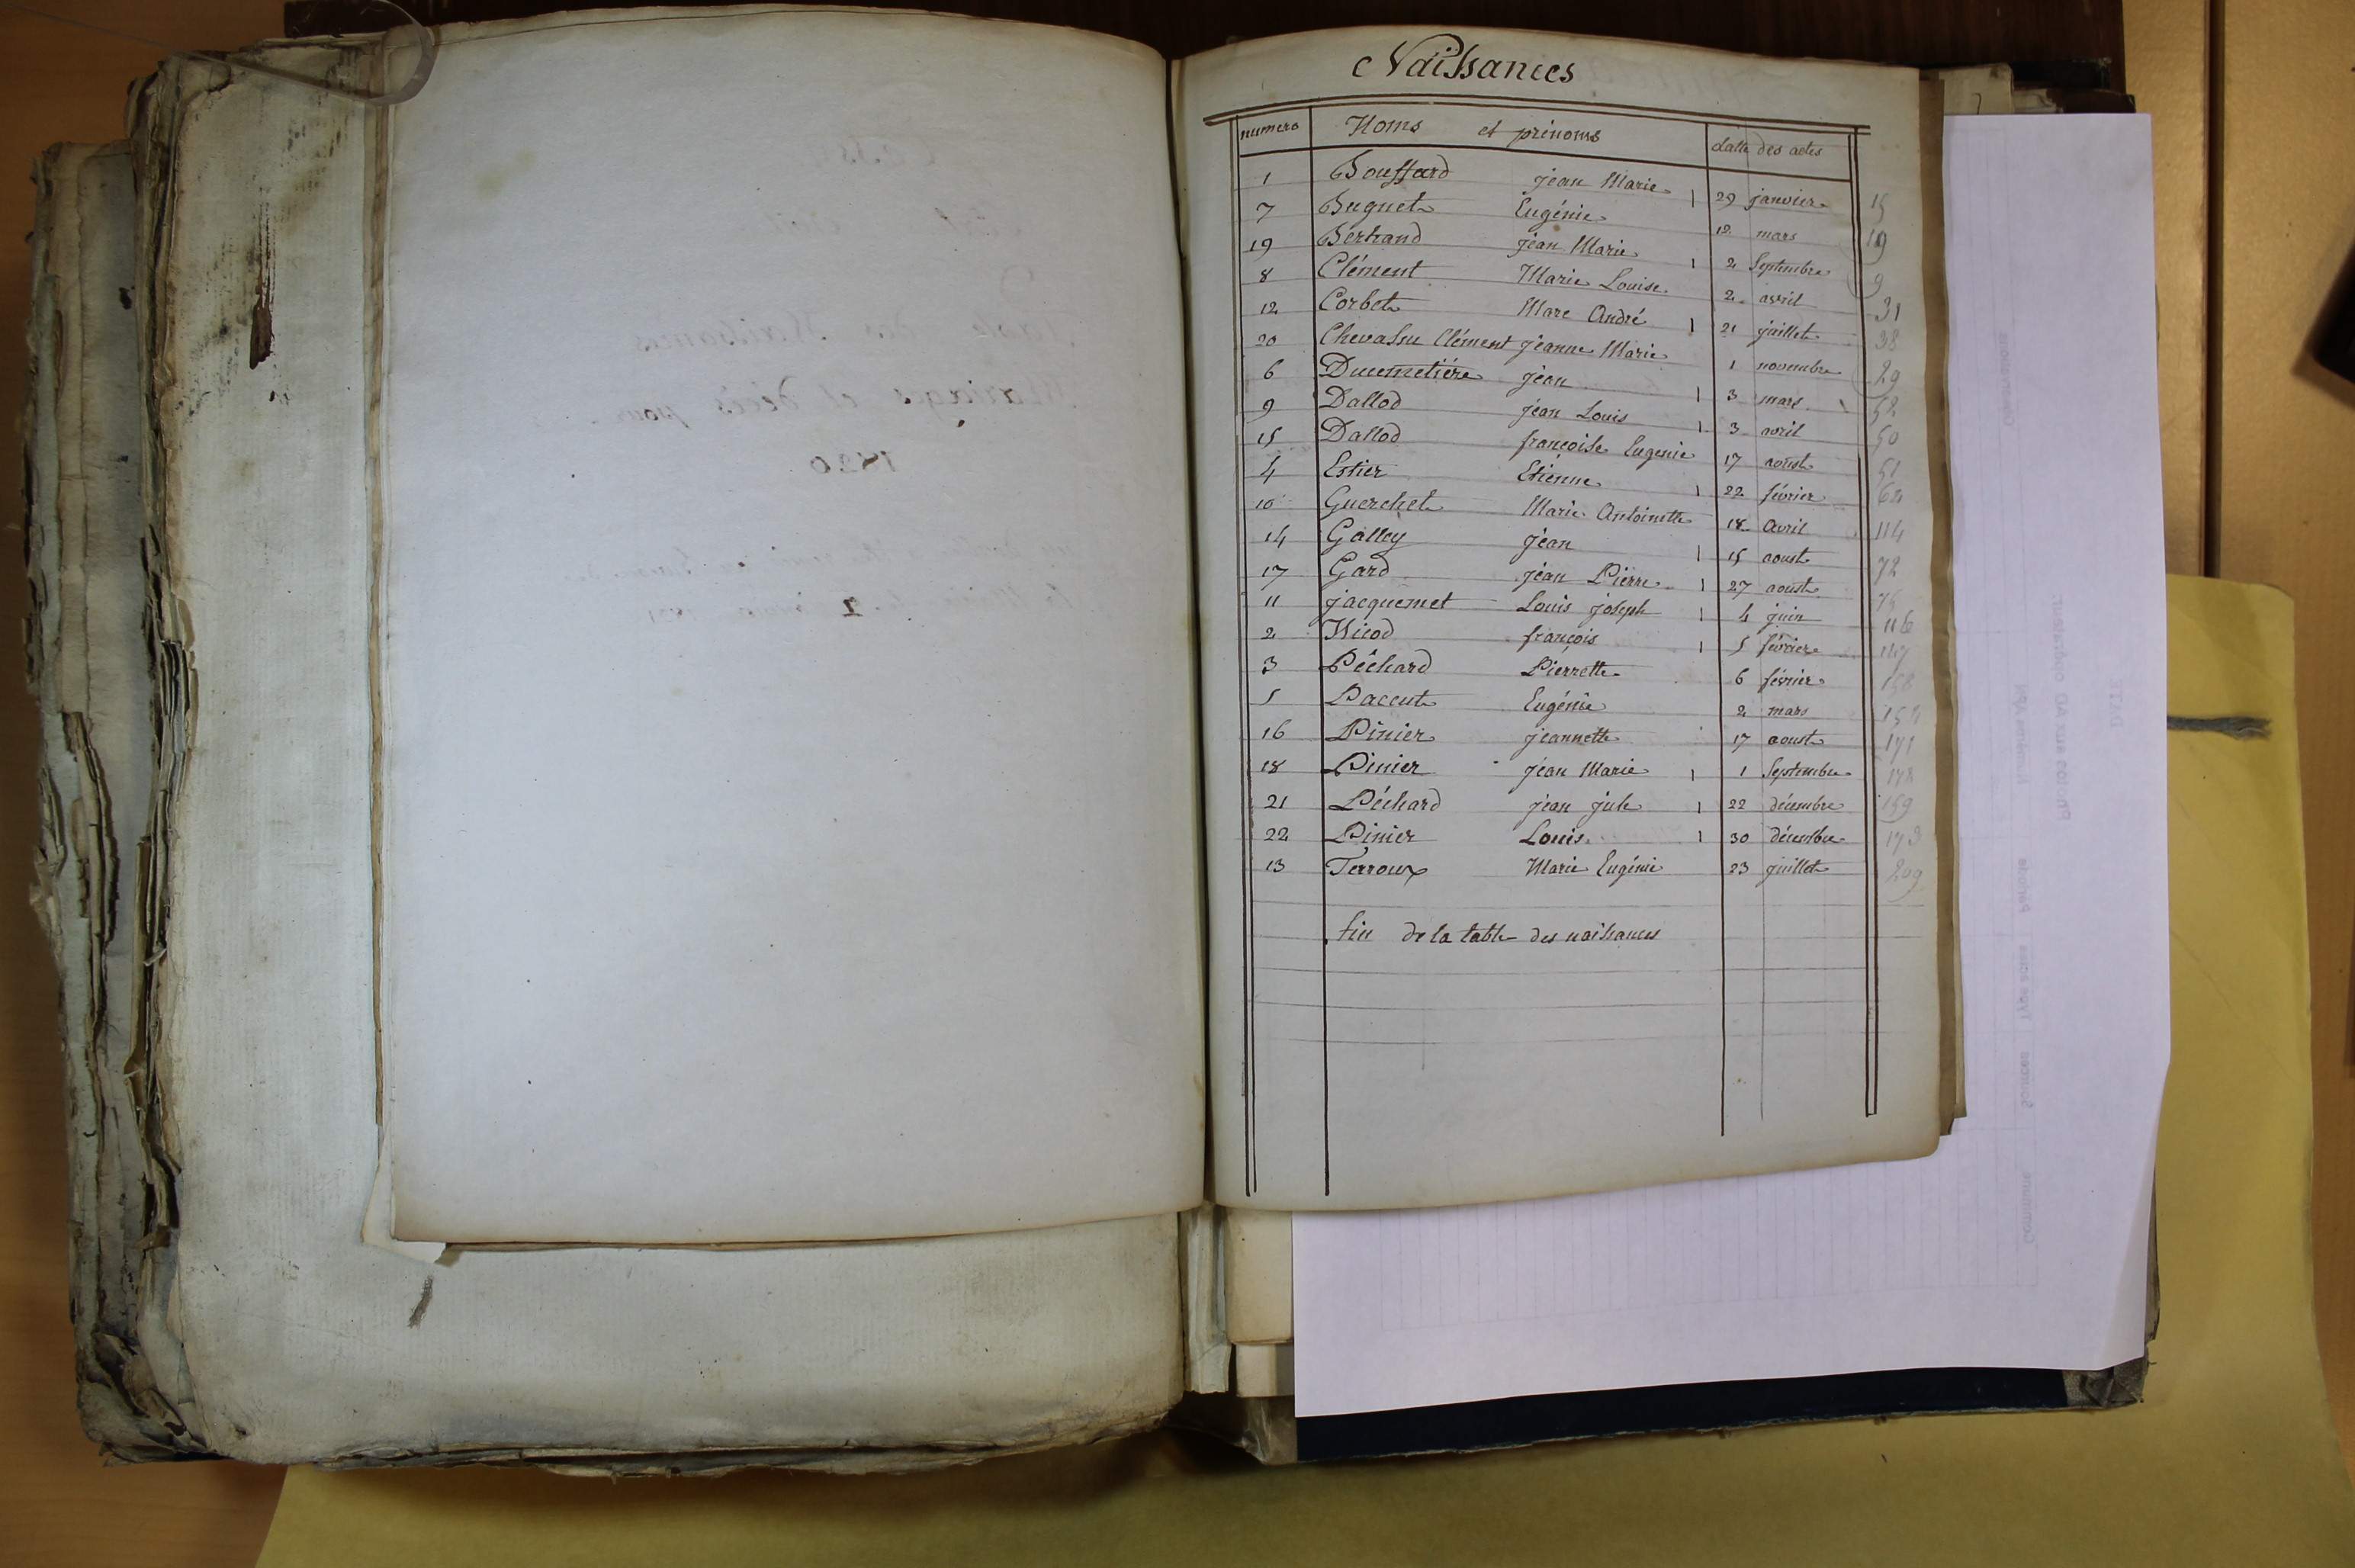 Naissances
numero Noms et prénoms datte des actes
1 Bouffard jean Marie 29 janvier 15
7 Buguet Eugénie 12 mars 19
19 Bertrand jean Marie 2 Septembre 9
8 Clément Marie Louise 2 avril 31
12 Corbet Marc André 21 juillet 38
20 Chevassu Clément jeanne Marie 1 novembre 29
6 Ducemetiére jean 3 mars 52
9 Dallod jean Louis 3 avril 50
15 Dallod francoise Eugenie 17 aoust 51
4 Estier Etienne 22 février 62
10 Guerchet Marie Antoinette 18 Avril 114
14 Galley jean 15 aoust 72
17 Gard jean Pierre 27 aoust 75
11 jacquemet Louis joseph 4 juin 116
2 Nicod françois 5 février 147
3 Péchard Pierrette 6 février 158
5 Paccut Eugénie 2 mars 152
16 Pinier jeannette 17 aoust 171
18 Pinier jean Marie 1 Septembre 178
21 Péchard jean jule 22 décembre 159
22 Pinier Louis 30 décembre 179
13 Terroux Marie Eugénie 23 juillet 209
fin de la table des naissances